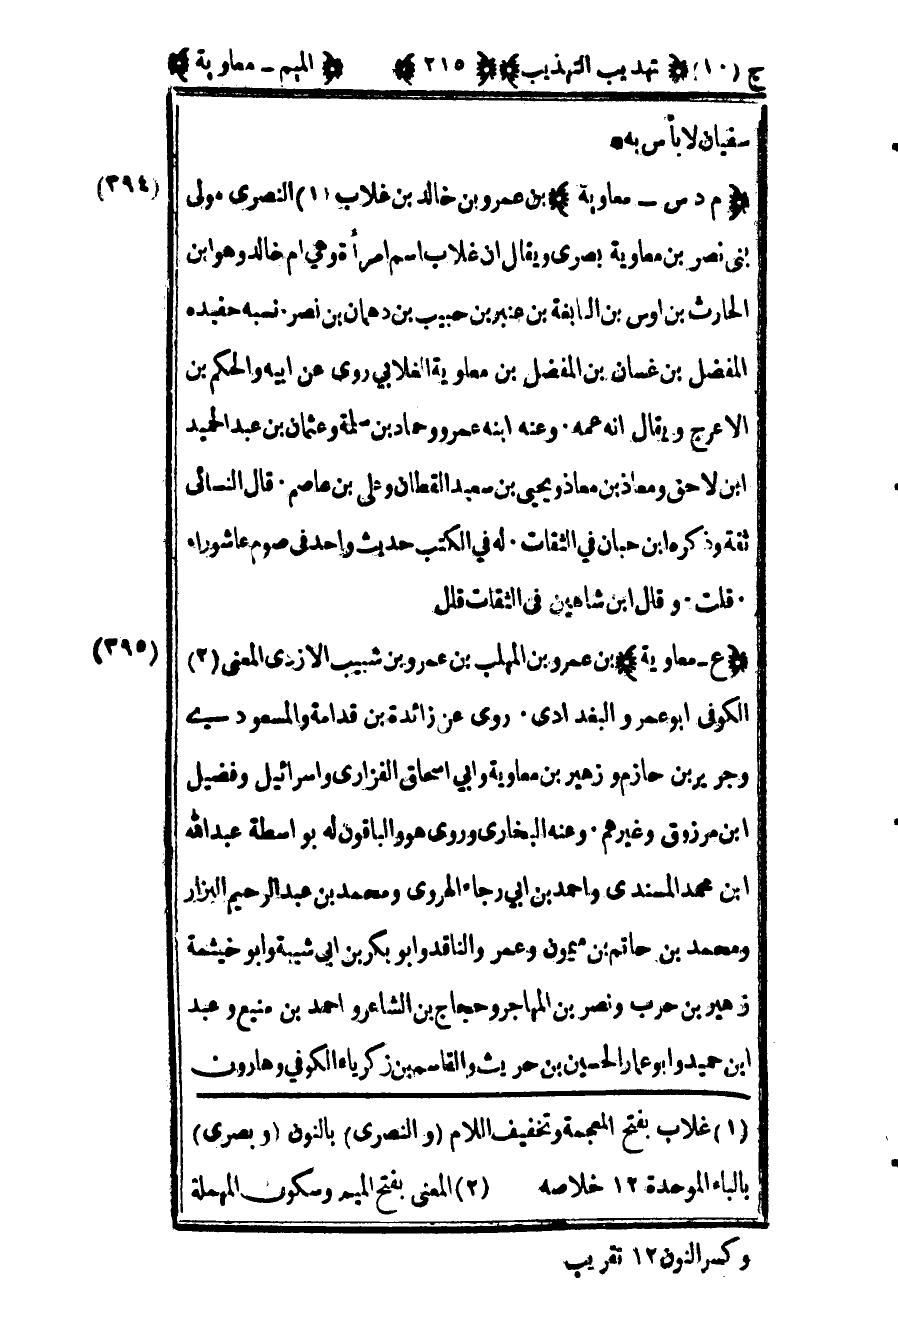 ج (١٠) ﴿ تهذيب التهذيب ﴾ ﴿ ٢١٥ ﴾ ﴿ الميم ــ معاوية ﴾
سفيان لا بأس به •
(٣٩٤) ﴿ م د س ــ معاوية ﴾ بن عمرو بن خالد بن غلاب (١) النصرى مولى
بنى نصر بن معاوية بصرى ويقال ان غلاب اسم امرأة وهي ام خالد وهو ابن
الحارث بن اوس بن النابغة بن عنبر بن حبيب بن دهمان بن نصر · نسبه حفيده
المفضل بن غسان بن المفضل بن معاوية الغلابي روى عن ابيه والحكم بن
الاعرج ويقال انه عمه · وعنه ابنه عمرو وحماد بن سلمة وعثمان بن عبد الحميد
ابن لاحق ومعاذ بن معاذ ويحيى بن سعيد القطان وعلى بن عاصم · قال النسائى
ثقة وذكره ابن حبان في الثقات · له في الكتب حديث واحد فى صوم عاشوراء
· قلت · وقال ابن شاهين فى الثقات قلل
(٣٩٥) ﴿ ع ــ معاوية ﴾ بن عمرو بن المهلب بن عمرو بن شبيب الازدى المعنى (٢)
الكوفى ابو عمرو البغدادى · روى عن زائدة بن قدامة والمسعودى
وجرير بن حازم وزهير بن معاوية وابي اسحاق الفزارى واسرائيل وفضيل
ابن مرزوق وغيرهم · وعنه البخارى وروى هو والباقون له بواسطة عبد الله
ابن محمد المسندى واحمد بن ابي رجاء الهروى ومحمد بن عبد الرحيم البزار
ومحمد بن حاتم بن ميمون وعمرو الناقد وابو بكر بن ابى شيبة وابو خيثمة
زهير بن حرب ونصر بن المهاجر وحجاج بن الشاعر واحمد بن منيع وعبد
ابن حميد وابو عمار الحسين بن حريث والقاسم بن زكرياء الكوفي وهارون
(١) غلاب بفتح المعجمة وتخفيف اللام (و النصرى) بالنون (و بصرى)
بالباء الموحدة ١٢ خلاصه (٢) المعنى بفتح الميم وسكون المهملة
وكسر النون ١٢ تقريب